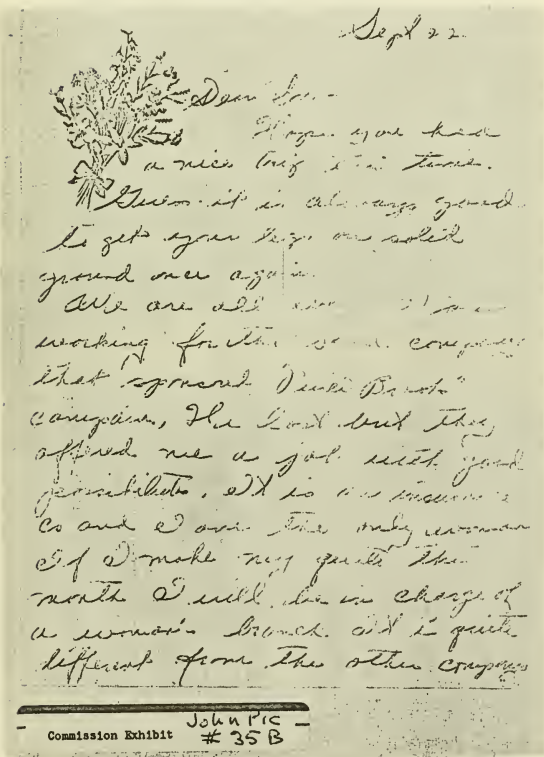 Sept 22.
Dear
Hope you had
a nice trip this time.
Guess it is always good
to get your legs on solid
ground once again.
We are all
working for the company
that sponsored
campaign, He lost but they
offered me a job with good
possibilities. It is an insurance
Co and I am the only woman
If I make my quota this
month I will be in charge of
a woman's branch. It is quite
different from the other company
Commission Exhibit John Pic
# 35 B